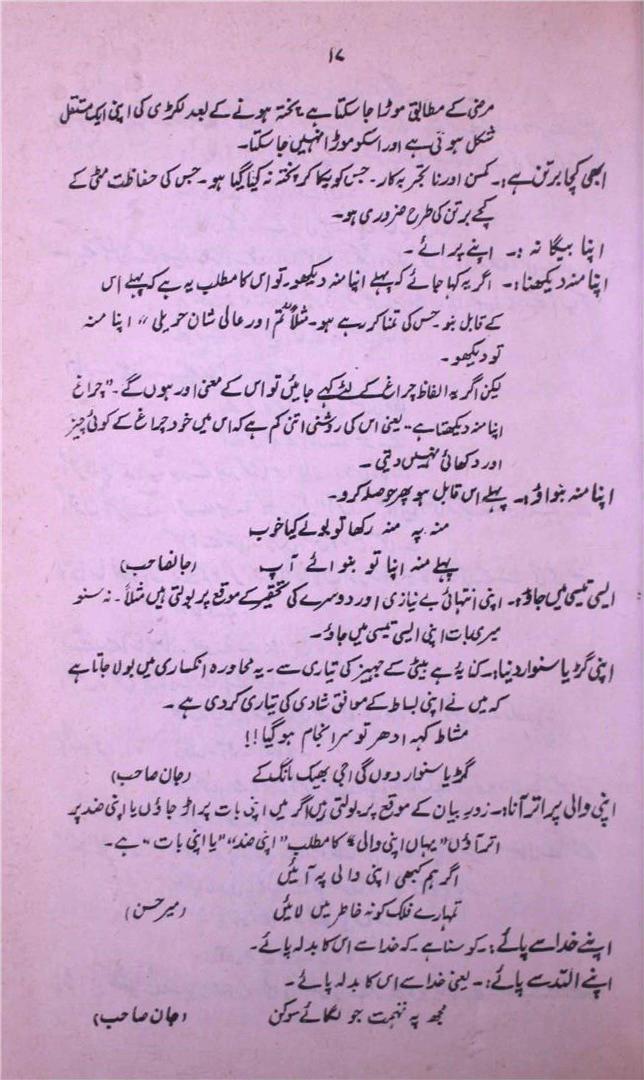 ۱۷
مرضی کے مطابق موڑا جا سکتا ہے پختہ ہونے کے بعد لکڑی کی اپنی ایک مستقل
شکل ہوتی ہے اور اسکو موڑا نہیں جا سکتا۔
ابھی کچا برتن ہے:۔ کمسن اور نا تجربہ کار۔ جس کو پکا کر پختہ نہ کیا گیا ہو۔ جس کی حفاظت مٹی کے
کچے برتن کی طرح ضروری ہو۔
اپنا بیگانہ :۔ اپنے پرائے۔
اپنا منہ دیکھنا:۔ اگر یہ کہا جائے کہ پہلے اپنا منہ دیکھو۔ تو اس کا مطلب یہ ہے کہ پہلے اس
کے قابل بنو۔ جس کی تمنا کر رہے ہو۔ مثلاً تم اور عالی شان حویلی ،، اپنا منہ
تو دیکھو۔
لیکن اگر یہ الفاظ چراغ کے لئے کہے جائیں تو اس کے معنی اور ہوں گے۔ "چراغ
اپنا منہ دیکھتا ہے" یعنی اس کی روشنی اتنی کم ہے کہ اس میں خود چراغ کے کوئی چیز
اور دکھائی نہیں دیتی۔
اپنا منہ بنواؤ:۔ پہلے اس قابل ہو پھر حوصلہ کرو۔
منہ پہ منہ رکھا تو بولے کیا خوب
پہلے منہ اپنا تو بنوائے آپ (جانصاحب)
ایسی تیسی میں جاؤ:۔ اپنی انتہائی بے نیازی اور دوسرے کی تحقیر کے موقع پر بولتی ہیں مثلاً۔ نہ سنو
میری بات اپنی ایسی تیسی میں جاؤ۔
اپنی گڑیا سنوار دینا:۔ کنایہ ہے بیٹی کے جہیز کی تیاری سے۔ یہ محاورہ انکساری میں بولا جاتا ہے
کہ میں نے اپنی بساط کے موافق شادی کی تیاری کر دی ہے۔
مشاط کہہ ادھر تو سرانجام ہو گیا!!
گڑیا سنوار دوں گی اجی بھیک مانگ کے (جان صاحب)
اپنی والی پر اتر آنا:۔ زورِ بیان کے موقع پر بولتی ہیں اگر میں اپنی بات پر اڑ جاؤں یا اپنی ضد پر
اتر آؤں" یہاں اپنی والی" کا مطلب "اپنی ضد" "یا اپنی بات" ہے۔
اگر ہم کبھی اپنی والی پہ آئیں
تمہارے فلک کو نہ خاطر میں لائیں (میر حسن)
اپنے خدا سے پائے:۔ کوسنا ہے۔ کہ خدا سے اس کا بدلہ پائے۔
اپنے اللہ سے پائے:۔ یعنی خدا سے اس کا بدلہ پائے۔
مجھ پہ تہمت جو لگائے سوکن (جان صاحب)